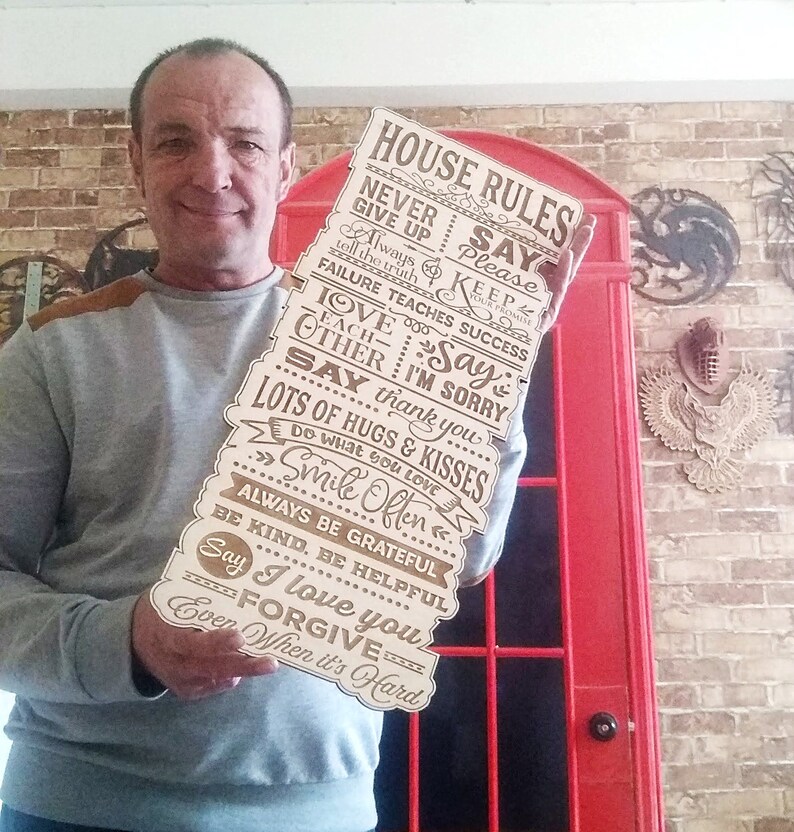 HOUSE RULES
NEVER
GIVE UP
SAY
Please
Always
tell the truth
&
KEEP
YOUR PROMISE
FAILURE TEACHES SUCCESS
LOVE
EACH
OTHER
Say
I'M SORRY
SAY thank you
LOTS OF HUGS & KISSES
DO WHAT YOU LOVE
Smile Often
ALWAYS BE GRATEFUL
BE KIND, BE HELPFUL
Say I love you
FORGIVE
Even When it's Hard